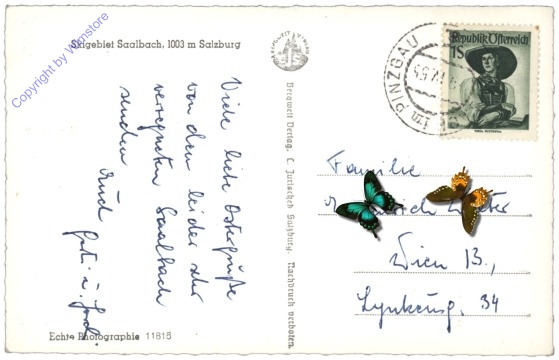 Skigebiet Saalbach, 1003 m Salzburg
Viele liebe Ostergrüße
von dem leider sehr
verregneten Saalbach
senden
Euch
Bergwelt Verlag, C. Jurischek Salzburg. Nachdruck verboten.
Echte Photographie 11815
Republik Österreich
1S
PINZGAU
Familie
Wien 13.,
34
Copyright by wmstore